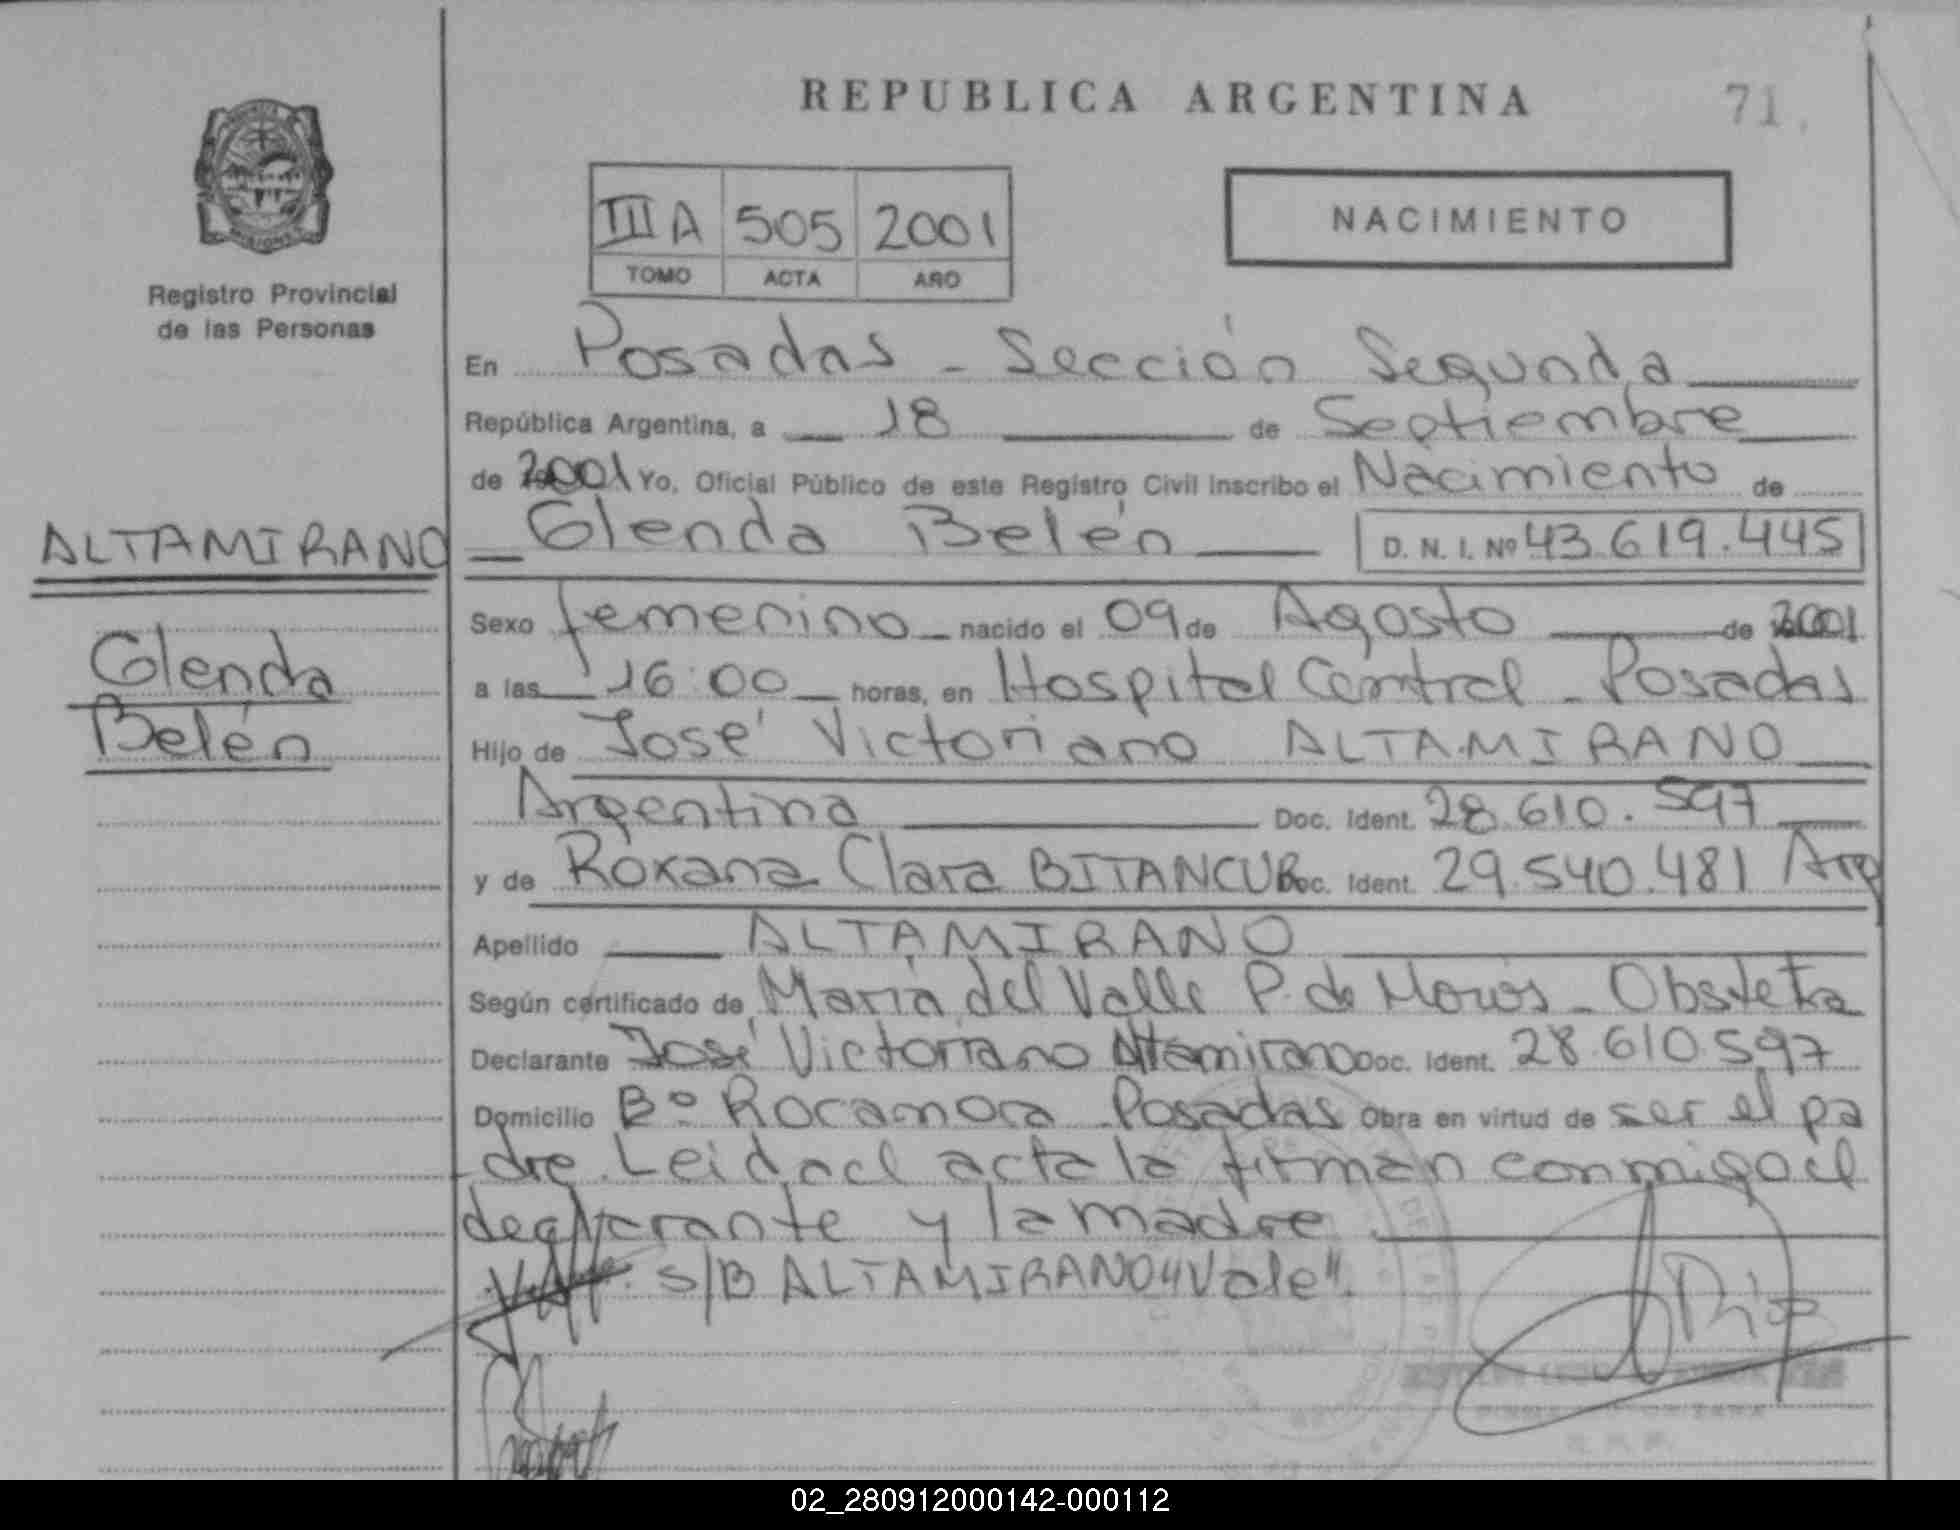 REPUBLICA ARGENTINA
71.
Registro Provincial
de las Personas
III A 505 2001
TOMO ACTA AÑO
NACIMIENTO
En Posadas - Sección Segunda
República Argentina, a 18 de Septiembre
de 2001 Yo, Oficial Público de este Registro Civil inscribo el Nacimiento de
ALTAMIRANO
Glenda Belén
Glenda Belén D. N. I. Nº 43.619.445
Sexo femenino nacido el 09 de Agosto de 2001
a las 16:00 horas, en Hospital Central - Posadas
Hijo de José Victoriano ALTAMIRANO
Argentina Doc. Ident. 28.610.597
y de Roxana Clara BITANCUR Doc. Ident. 29.540.481 Arg
Apellido ALTAMIRANO
Según certificado de María del Valle P. de - Obstetra
Declarante José Victoriano Altamirano Doc. Ident. 28.610.597
Domicilio Bº Rocamora Posadas Obra en virtud de ser el pa
dre. Leida el acta la firman conmigo el
declarante y la madre
S/B ALTAMIRANO "Vale".
02_280912000142-000112